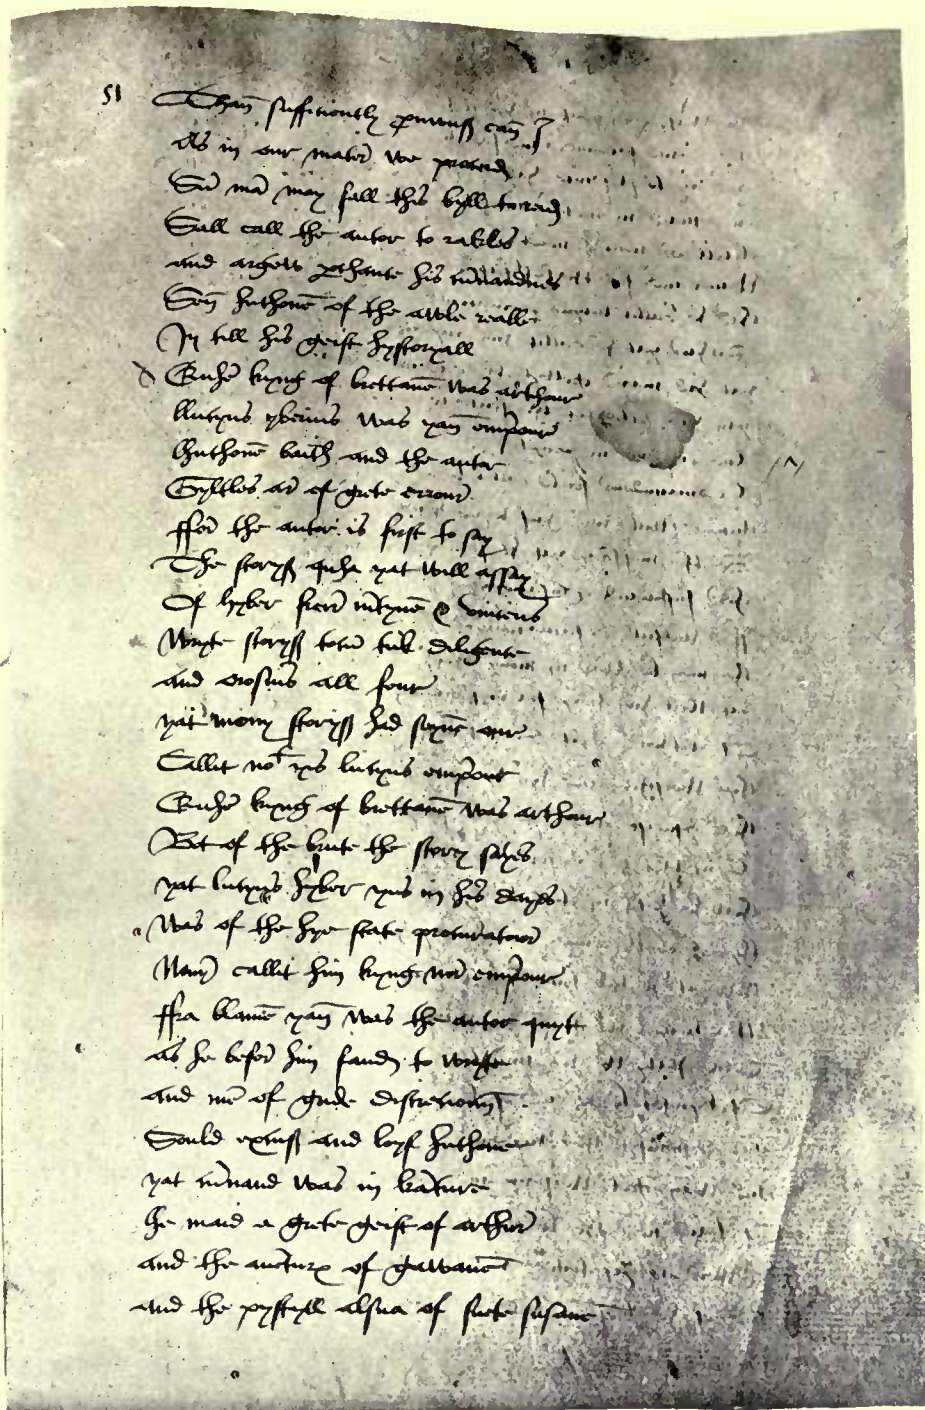 51 Than sufficiently pruwuß can I
As in our mater we proceid
Sū mā may fall this byll to reid
Sall call the autor to rakles
and argew perchance his cūnandnes
Sen huchone of the awle realle
In till his geist hystoryall
Quhē kyng of brettane was arthour
llucyus yberius was yan empour
huchone baith and the autor
Gyltles ar of grete errour
ffor the autor is first to say
The storyß quha yat will assay
Of lyber frere mtyne & vincens
Wryte storyß cotū tuk diligence
and orosius all four
yat mony storyß had seyne our
Callit noᵗ yis lucyus empour
Quhē kyng of brettane was arthour
Bot of the brute the story sayes
yat lucyus hyber yus in his dayes
Was of the hye state procuratour
Nany callit him kyng nor empoure
ffra blame yan was the autor quyte
as he befor him fand to wryte
and mē of gude discretioun
Sould excuß and loyf huchone
yat cūnand was in lrature
he maid a grete geist of arthur
and the auntur of gawane
and the pystyll alsua of suete susane